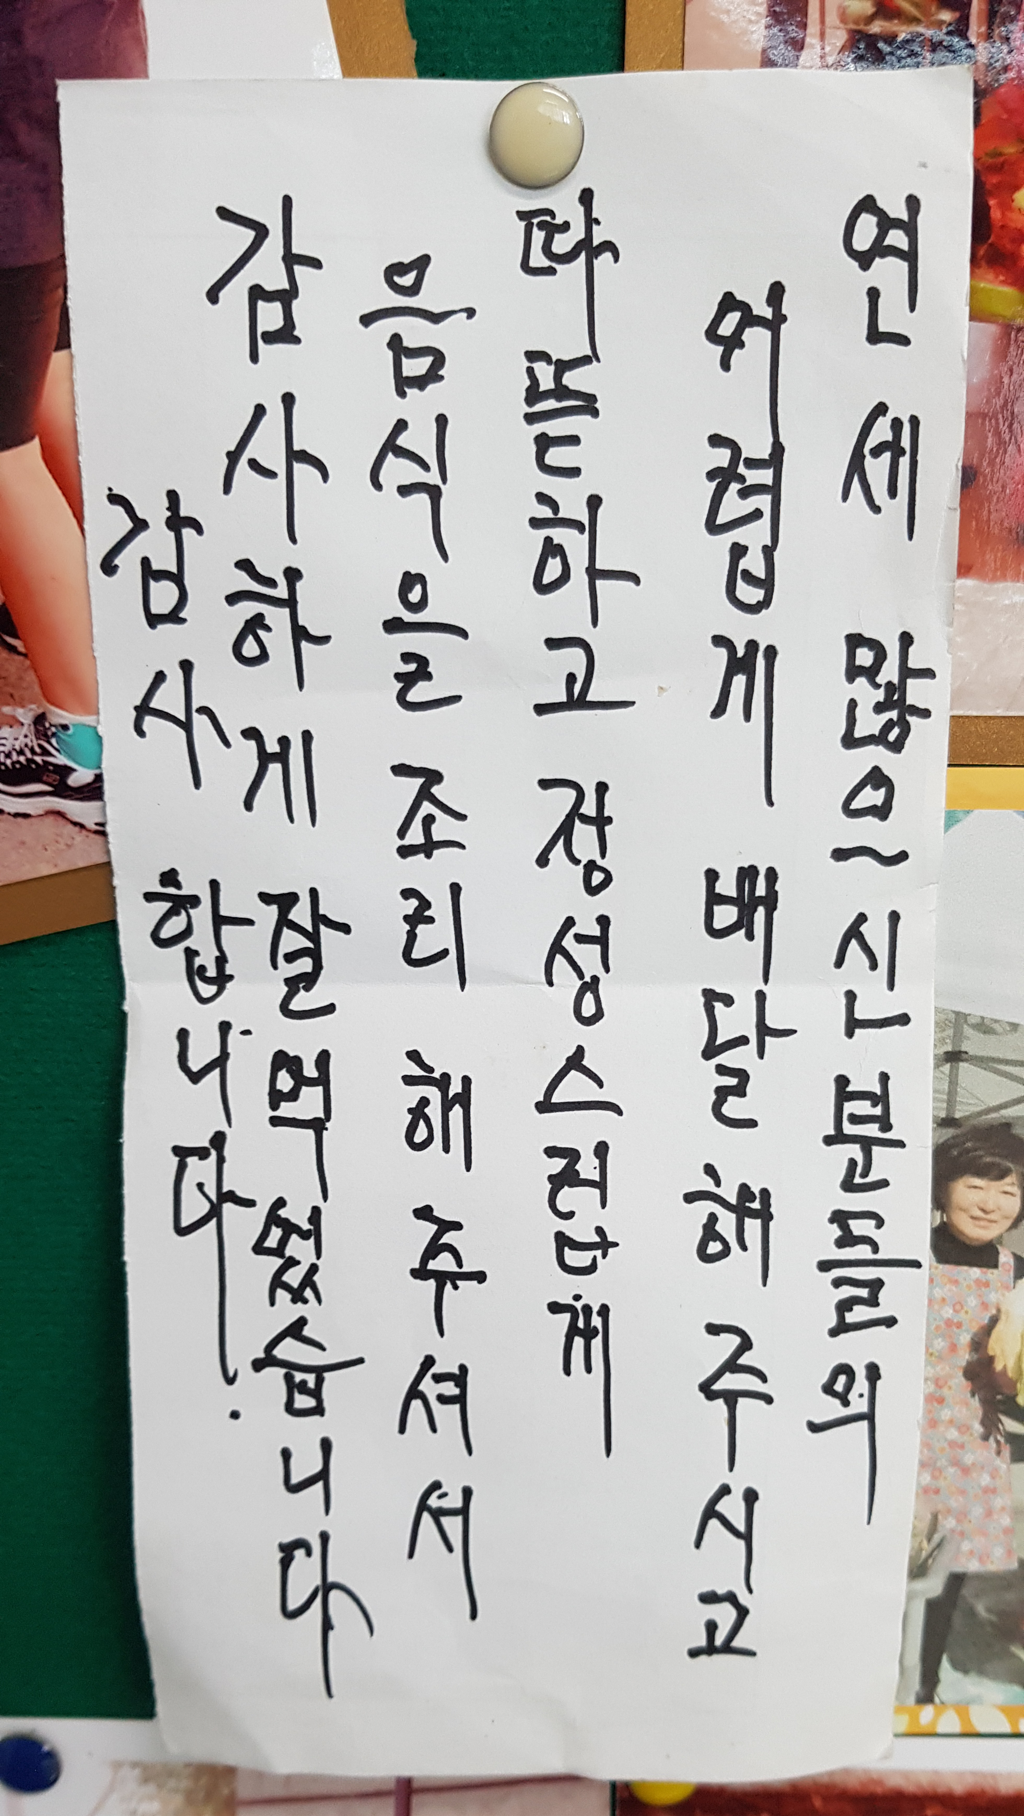 연세 많으신분들의
어렵게 배달해주시고
따뜻하고 정성스럽게
음식을 조리해주셔서
감사하게 잘먹었습니다
감사합니다.